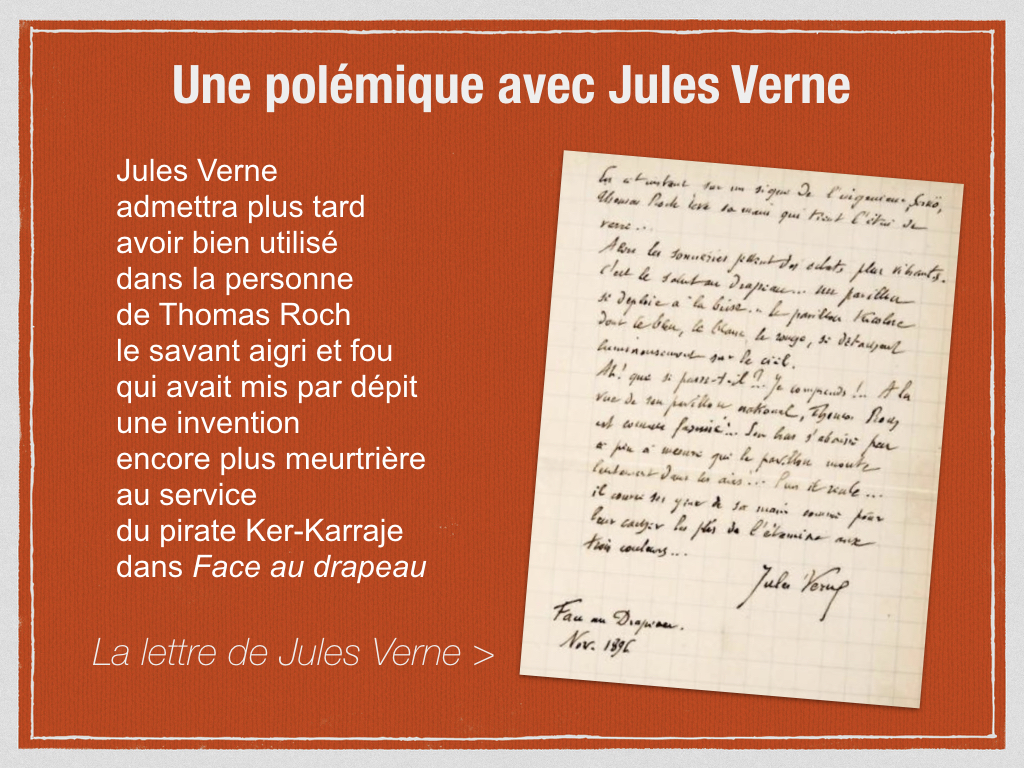 Une polémique avec Jules Verne
Jules Verne
admettra plus tard
avoir bien utilisé
dans la personne
de Thomas Roch
le savant aigri et fou
qui avait mis par dépit
une invention
encore plus meurtrière
au service
du pirate Ker-Karraje
dans Face au drapeau
La lettre de Jules Verne >
sur un signe de l'ingénieur Serkö,
Thomas Roch lève sa main qui tient l'étui de
verre...
Alors les sonneries jettent des éclats plus vibrants.
C'est le salut au drapeau... un pavillon
se déploie à la brise... le pavillon tricolore
dont le bleu, le blanc, le rouge, se détachent
lumineusement sur le ciel.
Ah! que se passe-t-il?... Je comprends!... A la
vue de son pavillon national, Thomas Roch
est comme fasciné!... Son bras s'abaisse peu
à peu à mesure que le pavillon monte
lentement dans les airs!... Puis il recule...
il couvre ses yeux de sa main comme pour
leur cacher les plis de l'étamine aux
trois couleurs...
Jules Verne
Face au Drapeau.
Nov. 1896